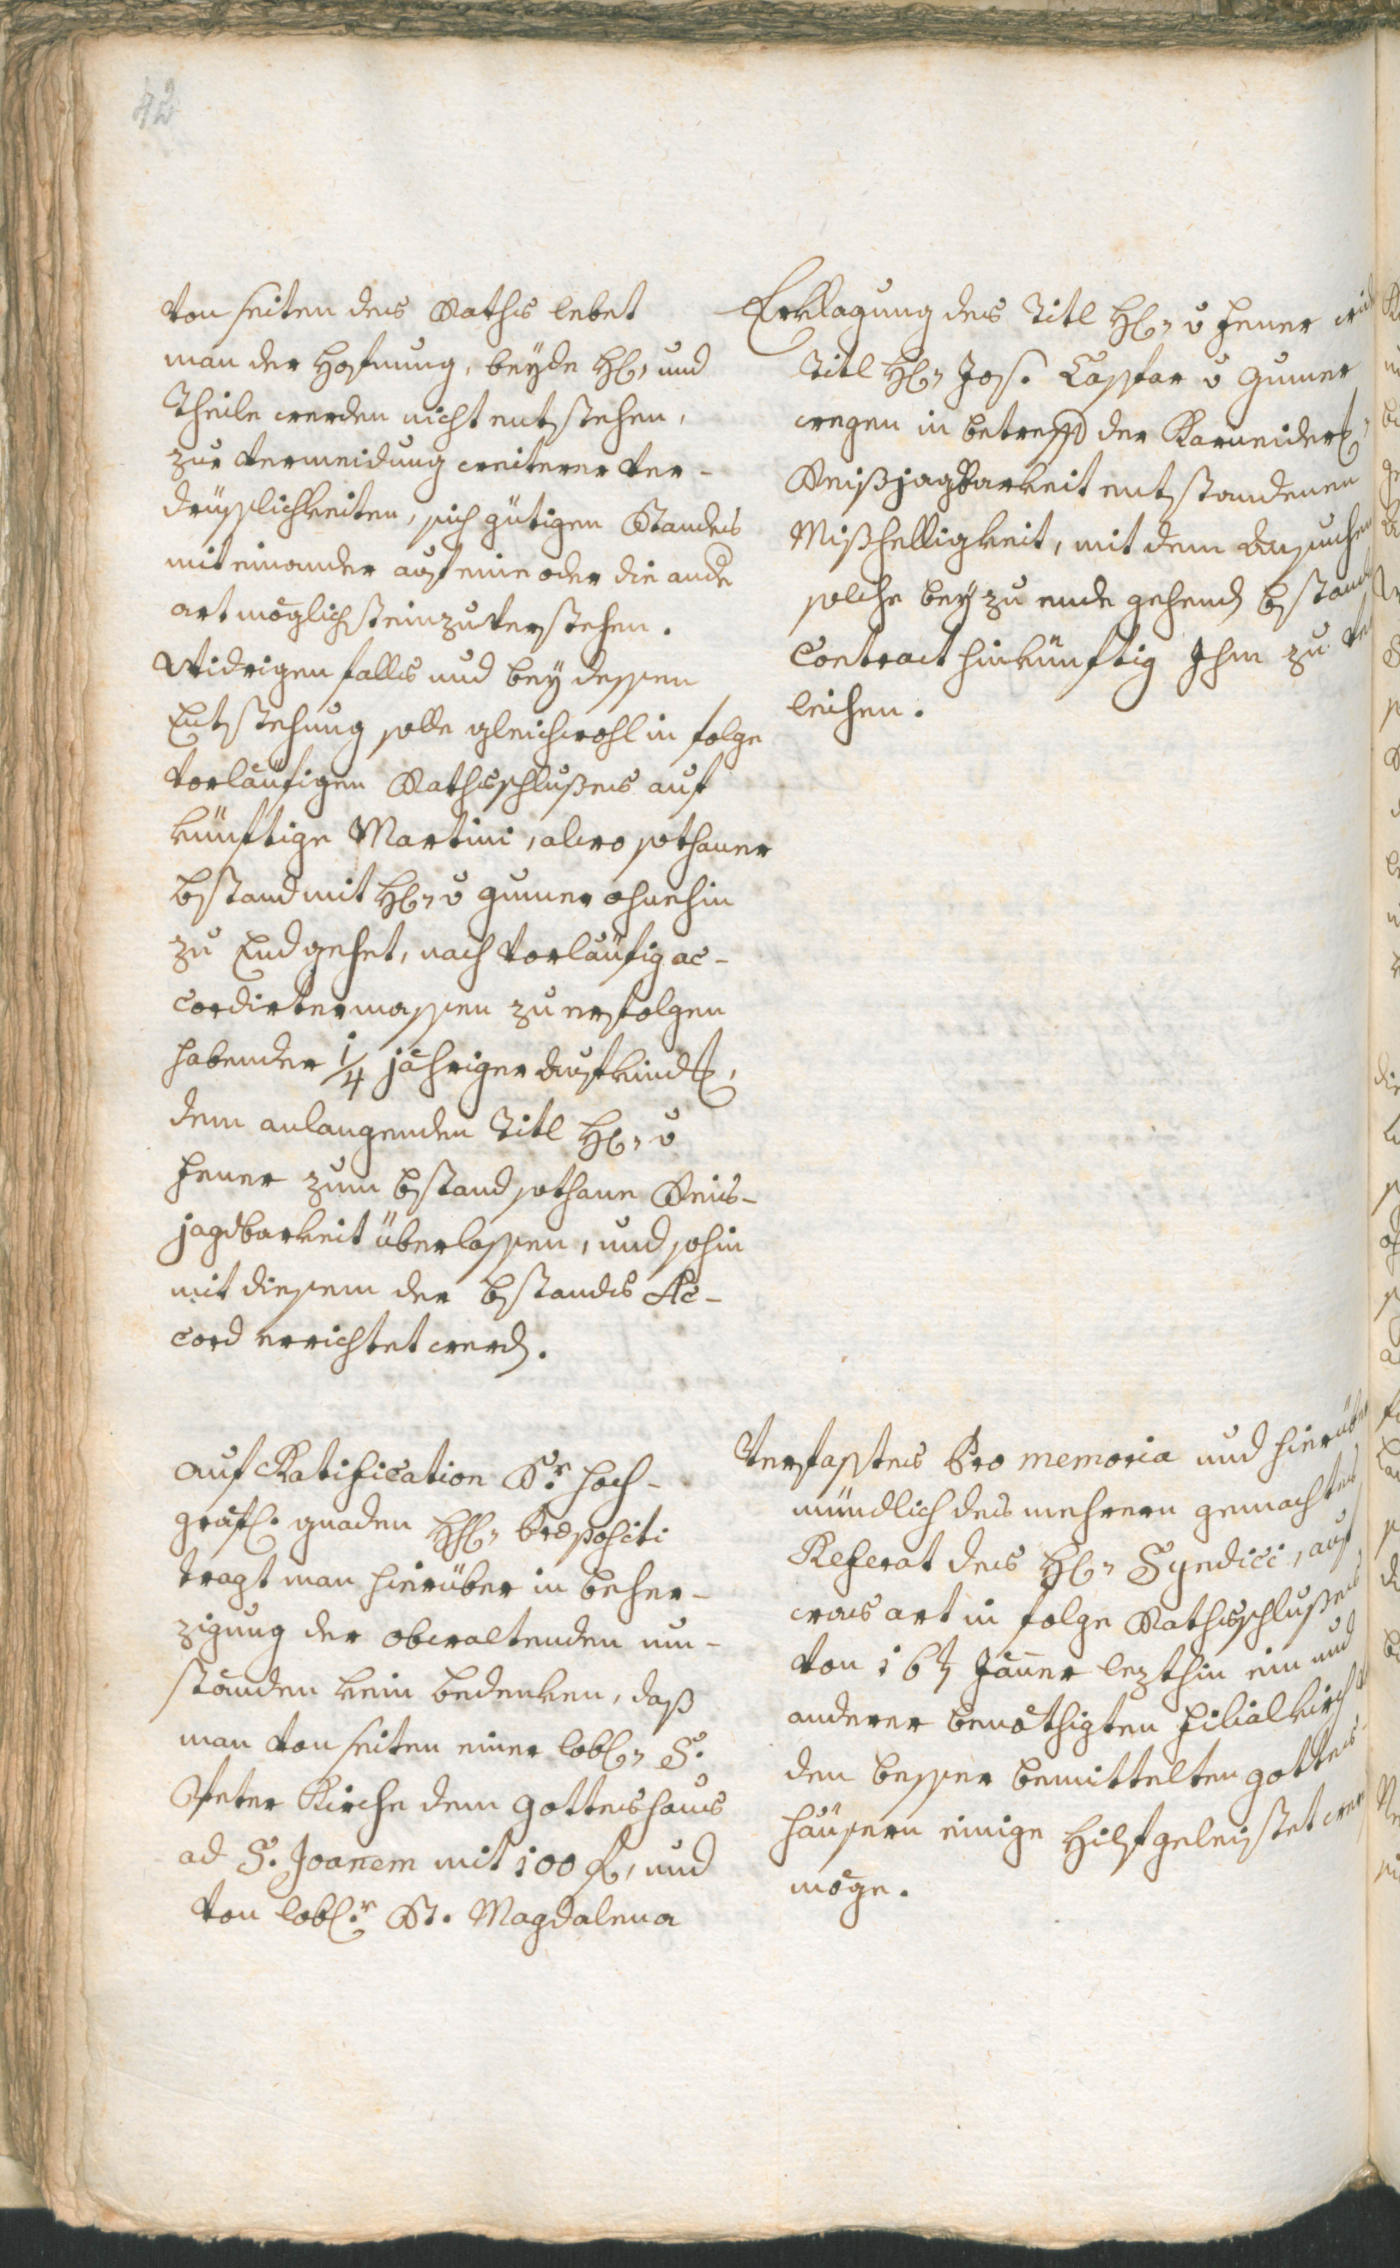 42
von seiten des Raths lebet
man der Hofnung, beyde H: und
Theile werden nicht entstehen,
zur vermeidung weiterer ver-
drüsslichkeiten, sich gütigen Standes
miteinander auf eine oder die ande
art möglichst einzuverstehen.
Widrigen falls und bey dessen
Entstehung solle gleichwohl in folge
vorläufigen Rathsschlußes auf
künftige Martini, alwo sothaner
bstand mit H: v Gumer ohnehin
zu End gehet, nach vorläufig ac-
cordirtermassen zu erfolgen
habender 1/4 jähriger Aufkindt,
dem anlangenden Titl H: v
Hener zum bstand sothane Reis-
jagdbarkeit überlassen, und sohin
mit diesem der bstands Ac-
cord errichtet werd.
Auf Ratification Sr. Hoch-
gräfl. gnaden HH: Præpositi
tragt man hierüber in beher-
zigung der obwaltenden um-
ständen kein bedenken, daß
man von seiten einer lobl: S.
Peter Kirche dem Gotteshaus
ad S. Joanem mit 100 f, und
von lobl.r St. Magdalena
Erklagung des Titl H: v Hener wid
Titl H: Jos. Caspar v Gumer
wegen in betreff der Karneider
Reißjagbarkeit entstandenen
Mißhelligkeit, mit dem Ansuchen
solche bey zu ende gehend bstand
Contract hinkünftig Ihm zu ve
leihen.
Verfasstes Pro memoria und hierüber
mündlich des mehrern gemachtes
Referat des H: Syndici, auf
was art in folge Rathsschlußes
von 16t Jäner lezthin ein und
anderer benöthigten filialkirch
den besser bemittelten gottes
häusern einige Hilf geleistet wer
möge.